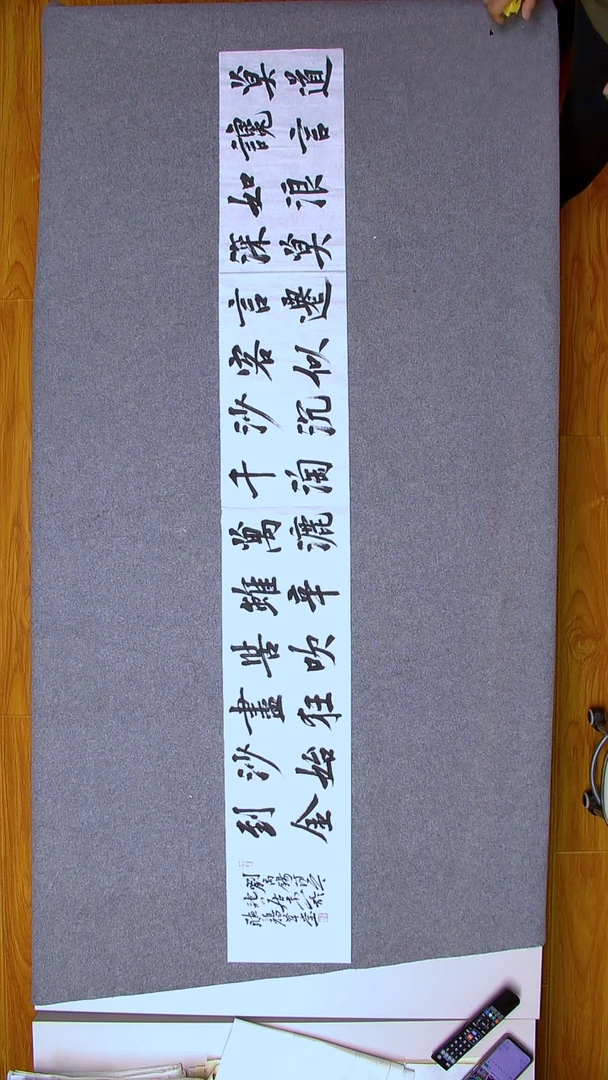 莫道
讒言
如浪
深莫
言遷
客似
沙沉
千淘
萬漉
雖辛
苦吹
盡狂
沙始
到金
劉禹錫詩